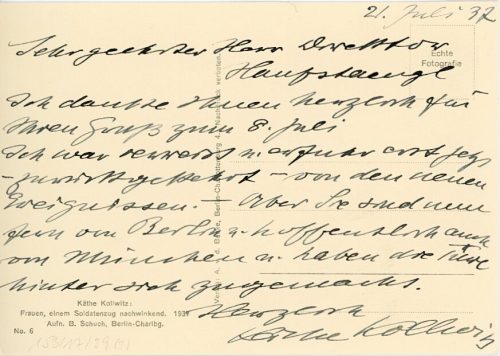 21. Juli 37
Sehr geehrter Herr Direktor
Hanfstaengl
Echte
Fotografie
Ich danke Ihnen herzlich für
Ihren Gruß zum 8. Juli
Ich war verreist u. erfuhr erst jetzt
- zurückgekehrt - von den neuen
Ereignissen. - Aber Sie sind nun
fern von Berlin u. hoffentlich auch
von München u. haben die Türe
hinter sich zugemacht.
Herzlich
Käthe Kollwitz
Käthe Kollwitz:
Frauen, einem Soldatenzug nachwinkend. 1937
Aufn. B. Schuch, Berlin-Charlbg.
No. 6
Berlin-Charlottenburg 4. Nachdruck verboten